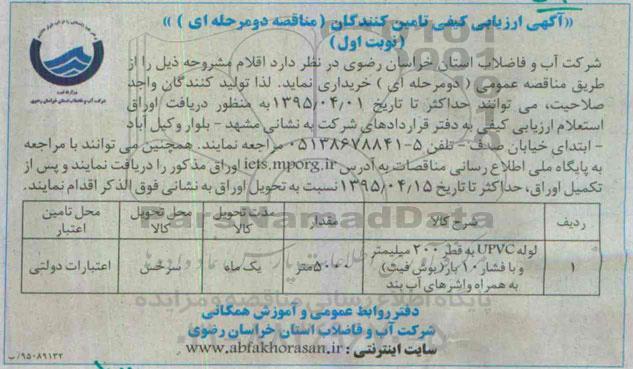 «آگهی ارزیابی کیفی تامین کنندگان (مناقصه دومرحله ای) »
(نوبت اول)
شرکت آب و فاضلاب استان خراسان رضوی در نظر دارد اقلام مشروحه ذیل را از
طریق مناقصه عمومی (دومرحله ای) خریداری نماید. لذا تولید کنندگان واجد
صلاحیت، می توانند حداکثر تا تاریخ ۱۳۹۵/۰۴/۰۱ به منظور دریافت اوراق
استعلام ارزیابی کیفی به دفتر قراردادهای شرکت به نشانی مشهد - بلوار وکیل آباد
- ابتدای خیابان صدف - تلفن ۵-۰۵۱۳۸۶۷۸۸۴۱ مراجعه نمایند. همچنین می توانند با مراجعه
به پایگاه ملی اطلاع رسانی مناقصات به آدرس iets.mporg.ir اوراق مذکور را دریافت نمایند و پس از
تکمیل اوراق، حداکثر تا تاریخ ۱۳۹۵/۰۴/۱۵ نسبت به تحویل اوراق به نشانی فوق الذکر اقدام نمایند.
وزارت نیرو
شرکت آب و فاضلاب استان خراسان رضوی
ردیف شرح کالا مقدار مدت تحویل کالا محل تحویل کالا محل تامین اعتبار
۱ لوله UPVC به قطر ۲۰۰ میلیمتر
و با فشار ۱۰ بار (پوش فیت) ۵۰۰۰ متر یک ماه سرخس اعتبارات دولتی
به همراه واشرهای آب بند
ParsNamadData
پایگاه اطلاع رسانی مناقصه و مزایده
دفتر روابط عمومی و آموزش همگانی
شرکت آب و فاضلاب استان خراسان رضوی
سایت اینترنتی : www.abfakhorasan.ir
۹۵۰۸۹۱۳۲/ب